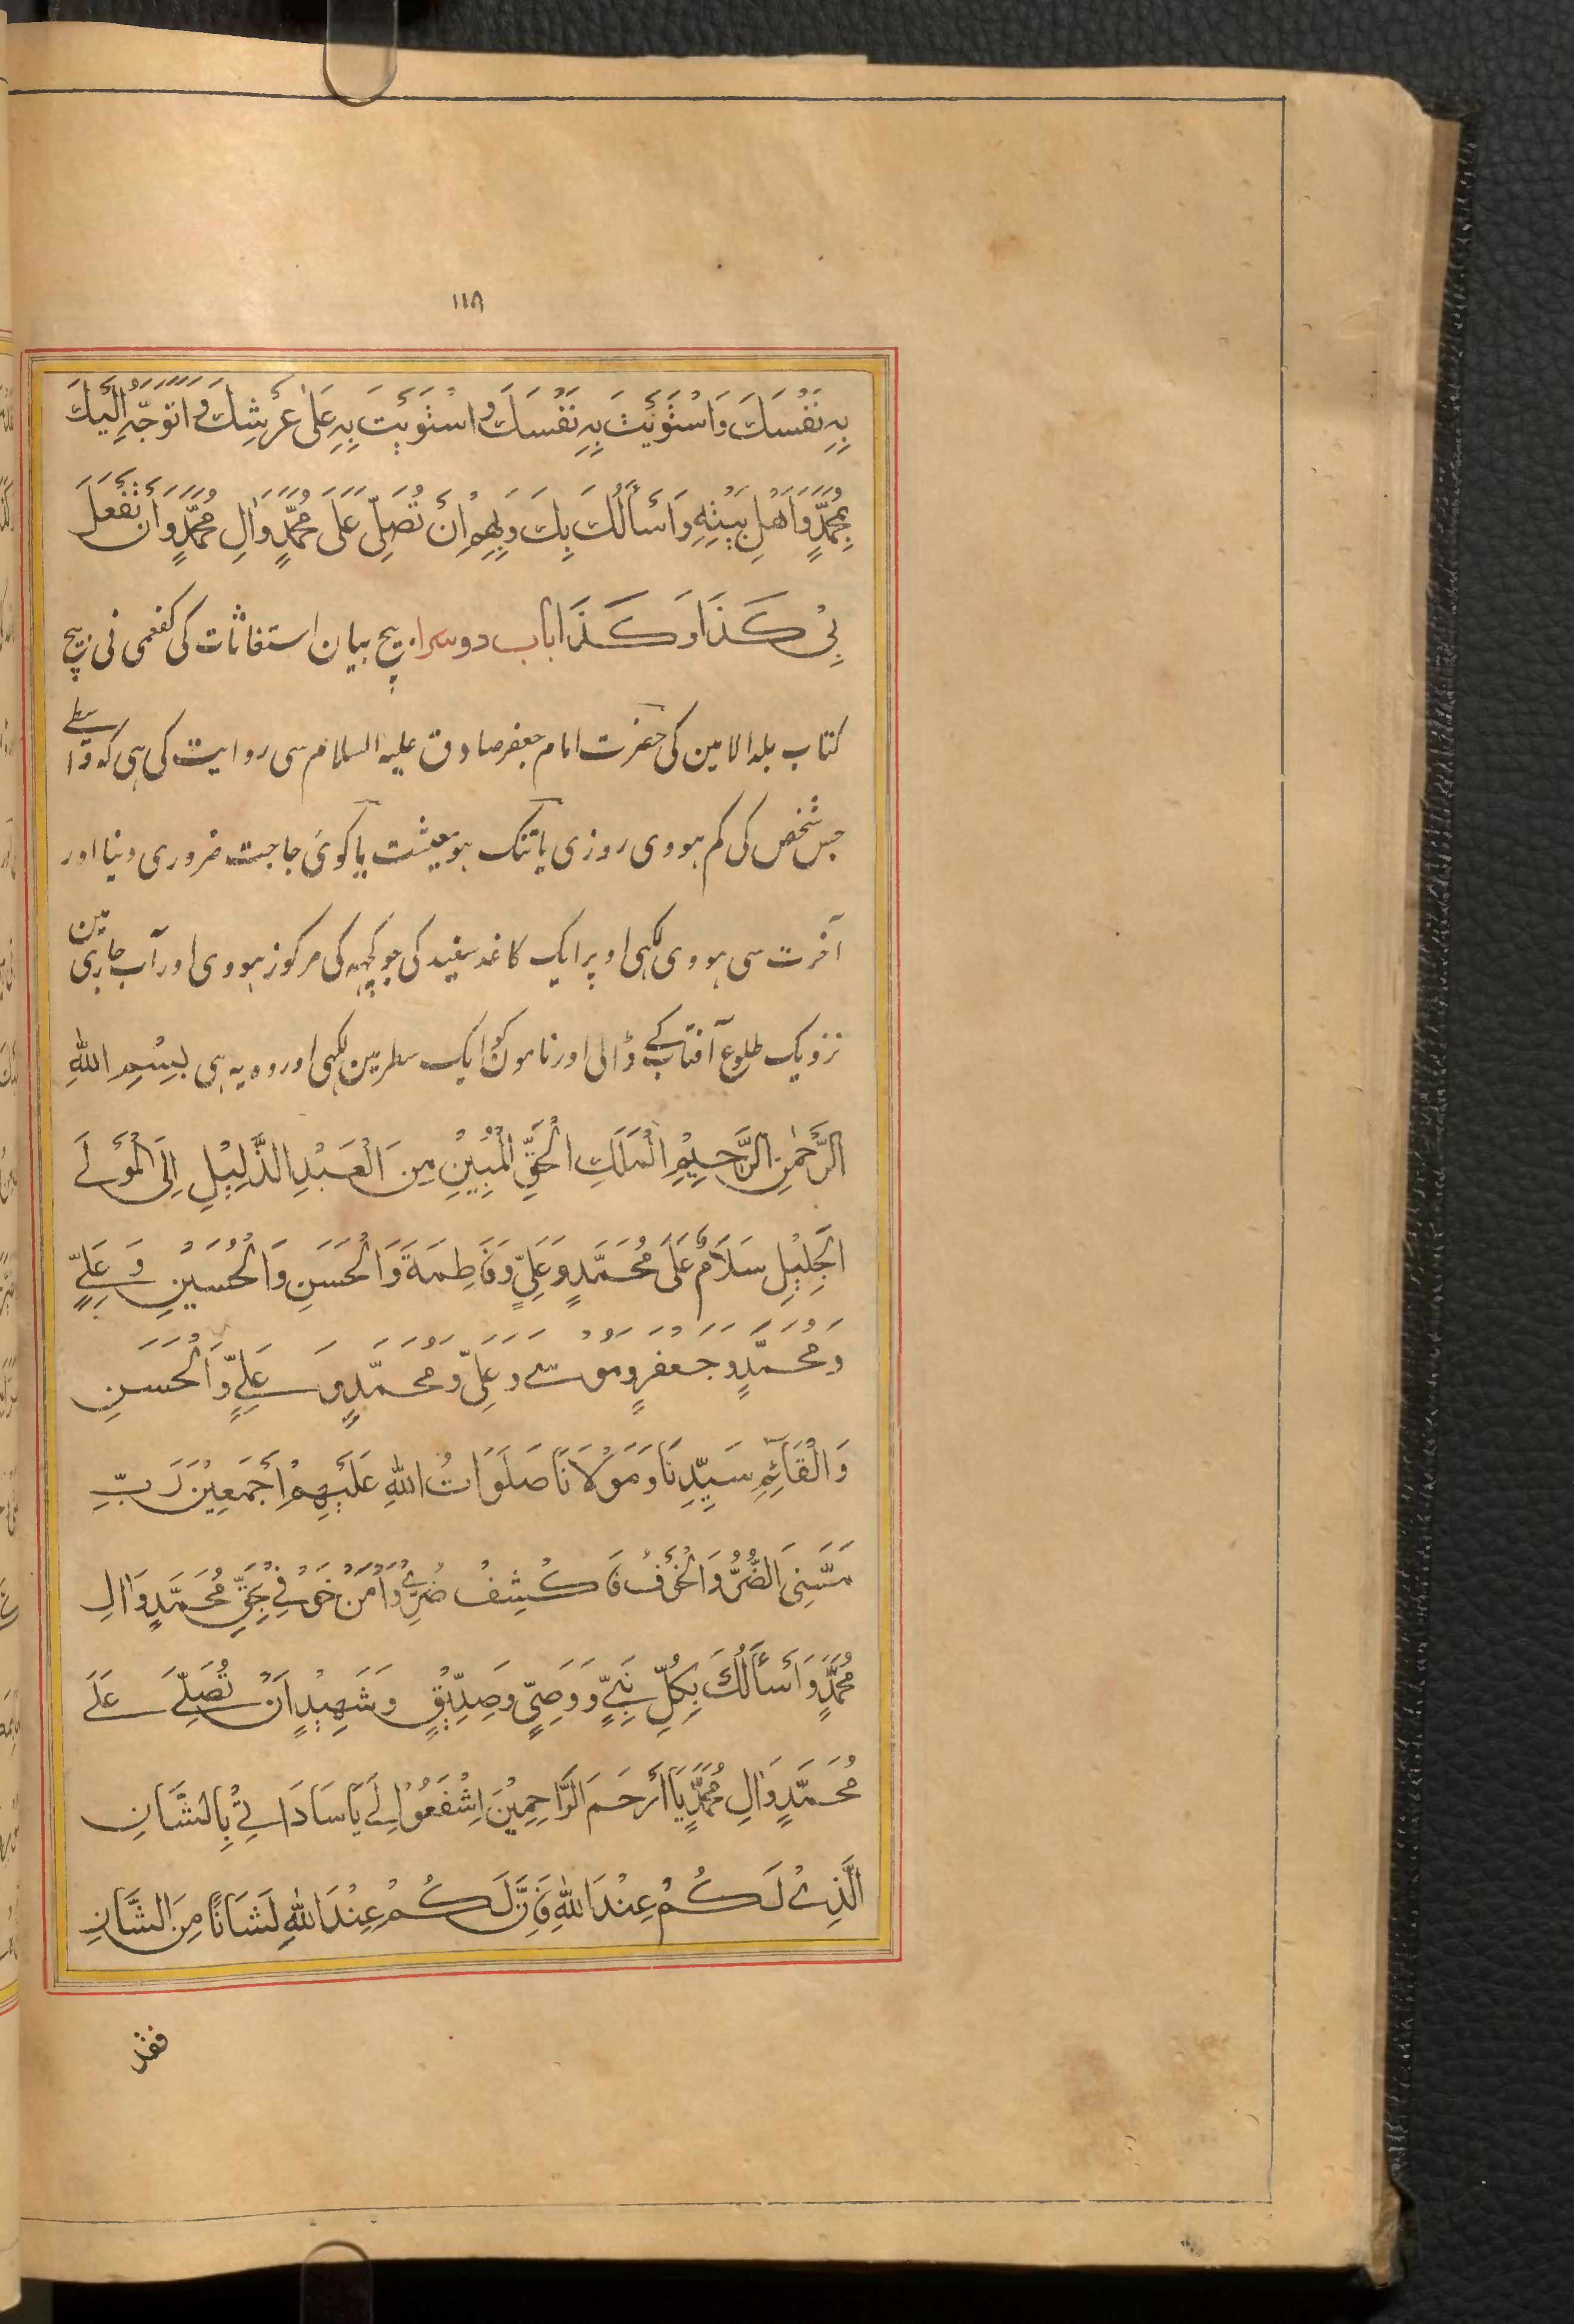 ١١٨
بِهِ نَفْسَكَ وَاسْتَوَيْتَ بِهِ نَفْسَكَ وَاسْتَوَيْتَ بِهِ عَلىٰ عَرْشِكَ وَاَتَوَجَّهُ اِلَيْكَ
بِمُحَمَّدٍ وَاَهْلِ بَيْتِهِ وَاَسْأَلُكَ بِكَ وَبِهِمْ اَنْ تُصَلِّىَ عَلَى مُحَمَّدٍ وَاٰلِ مُحَمَّدٍ وَاَنْ تَفْعَلَ
بِىْ كَذَا وَكَذَا باب دوسرا بیچ بیان استغاثات کی کفعمی نی بیچ
کتاب بلد الامین کی حضرت امام جعفر صادق علیہ السلام سی روایت کی ہی کہ واسطے
جس شخص کی کم ہووی روزی یا تنک ہو معیشت یا کوئی حاجت ضروری دنیا اور
آخرت سی ہووی لکہی اوپر ایک کاغذ سفید کی جو کچہہ کی مرکوز ہووی اور آب جاری مین
نزدیک طلوع آفتاب کے ڈالی اور نامون کو ایک سطر مین لکہی اور وہ یہ ہی بِسْمِ اللهِ
الرَّحْمٰنِ الرَّحِيْمِ الْمَلَكِ الْحَقِّ الْمُبِيْنِ مِنَ الْعَبْدِ الذَّلِيْلِ اِلَى الْمَوْلَے
الْجَلِيْلِ سَلَامٌ عَلَى مُحَمَّدٍ وَعَلِيٍّ وَفَاطِمَةَ وَالْحَسَنِ وَالْحُسَيْنِ وَعَلِيٍّ
وَمُحَمَّدٍ وَجَعْفَرٍ وَمُوْسٰے وَعَلِىٍّ وَمُحَمَّدٍ وَعَلِيٍّ وَالْحَسَنِ
وَالْقَآئِمِ سَيِّدِنَا وَمَوْلَانَا صَلَوَاتُ اللهِ عَلَيْهِمْ اَجْمَعِيْنَ رَبِّ
مَسَّنِىَ الضُّرُّ وَالْخَوْفُ فَاكْشِفْ ضُرِّے وَاٰمِنْ خَوْفِے بِحَقِّ مُحَمَّدٍ وَاٰلِ
مُحَمَّدٍ وَاَسْأَلُكَ بِكُلِّ نَبِيٍّ وَوَصِيٍّ وَصِدِّيْقٍ وَشَهِيْدٍ اَنْ تُصَلِّےَ عَلَے
مُحَمَّدٍ وَاٰلِ مُحَمَّدٍ يَا اَرْحَمَ الرَّاحِمِيْنَ اِشْفَعُوْا لِے يَا سَادَاتِےْ بِالشَّانِ
الَّذِےْ لَكُمْ عِنْدَ اللهِ فَاِنَّ لَكُمْ عِنْدَ اللهِ لَشَانًا مِنَ الشَّانِ
فقد